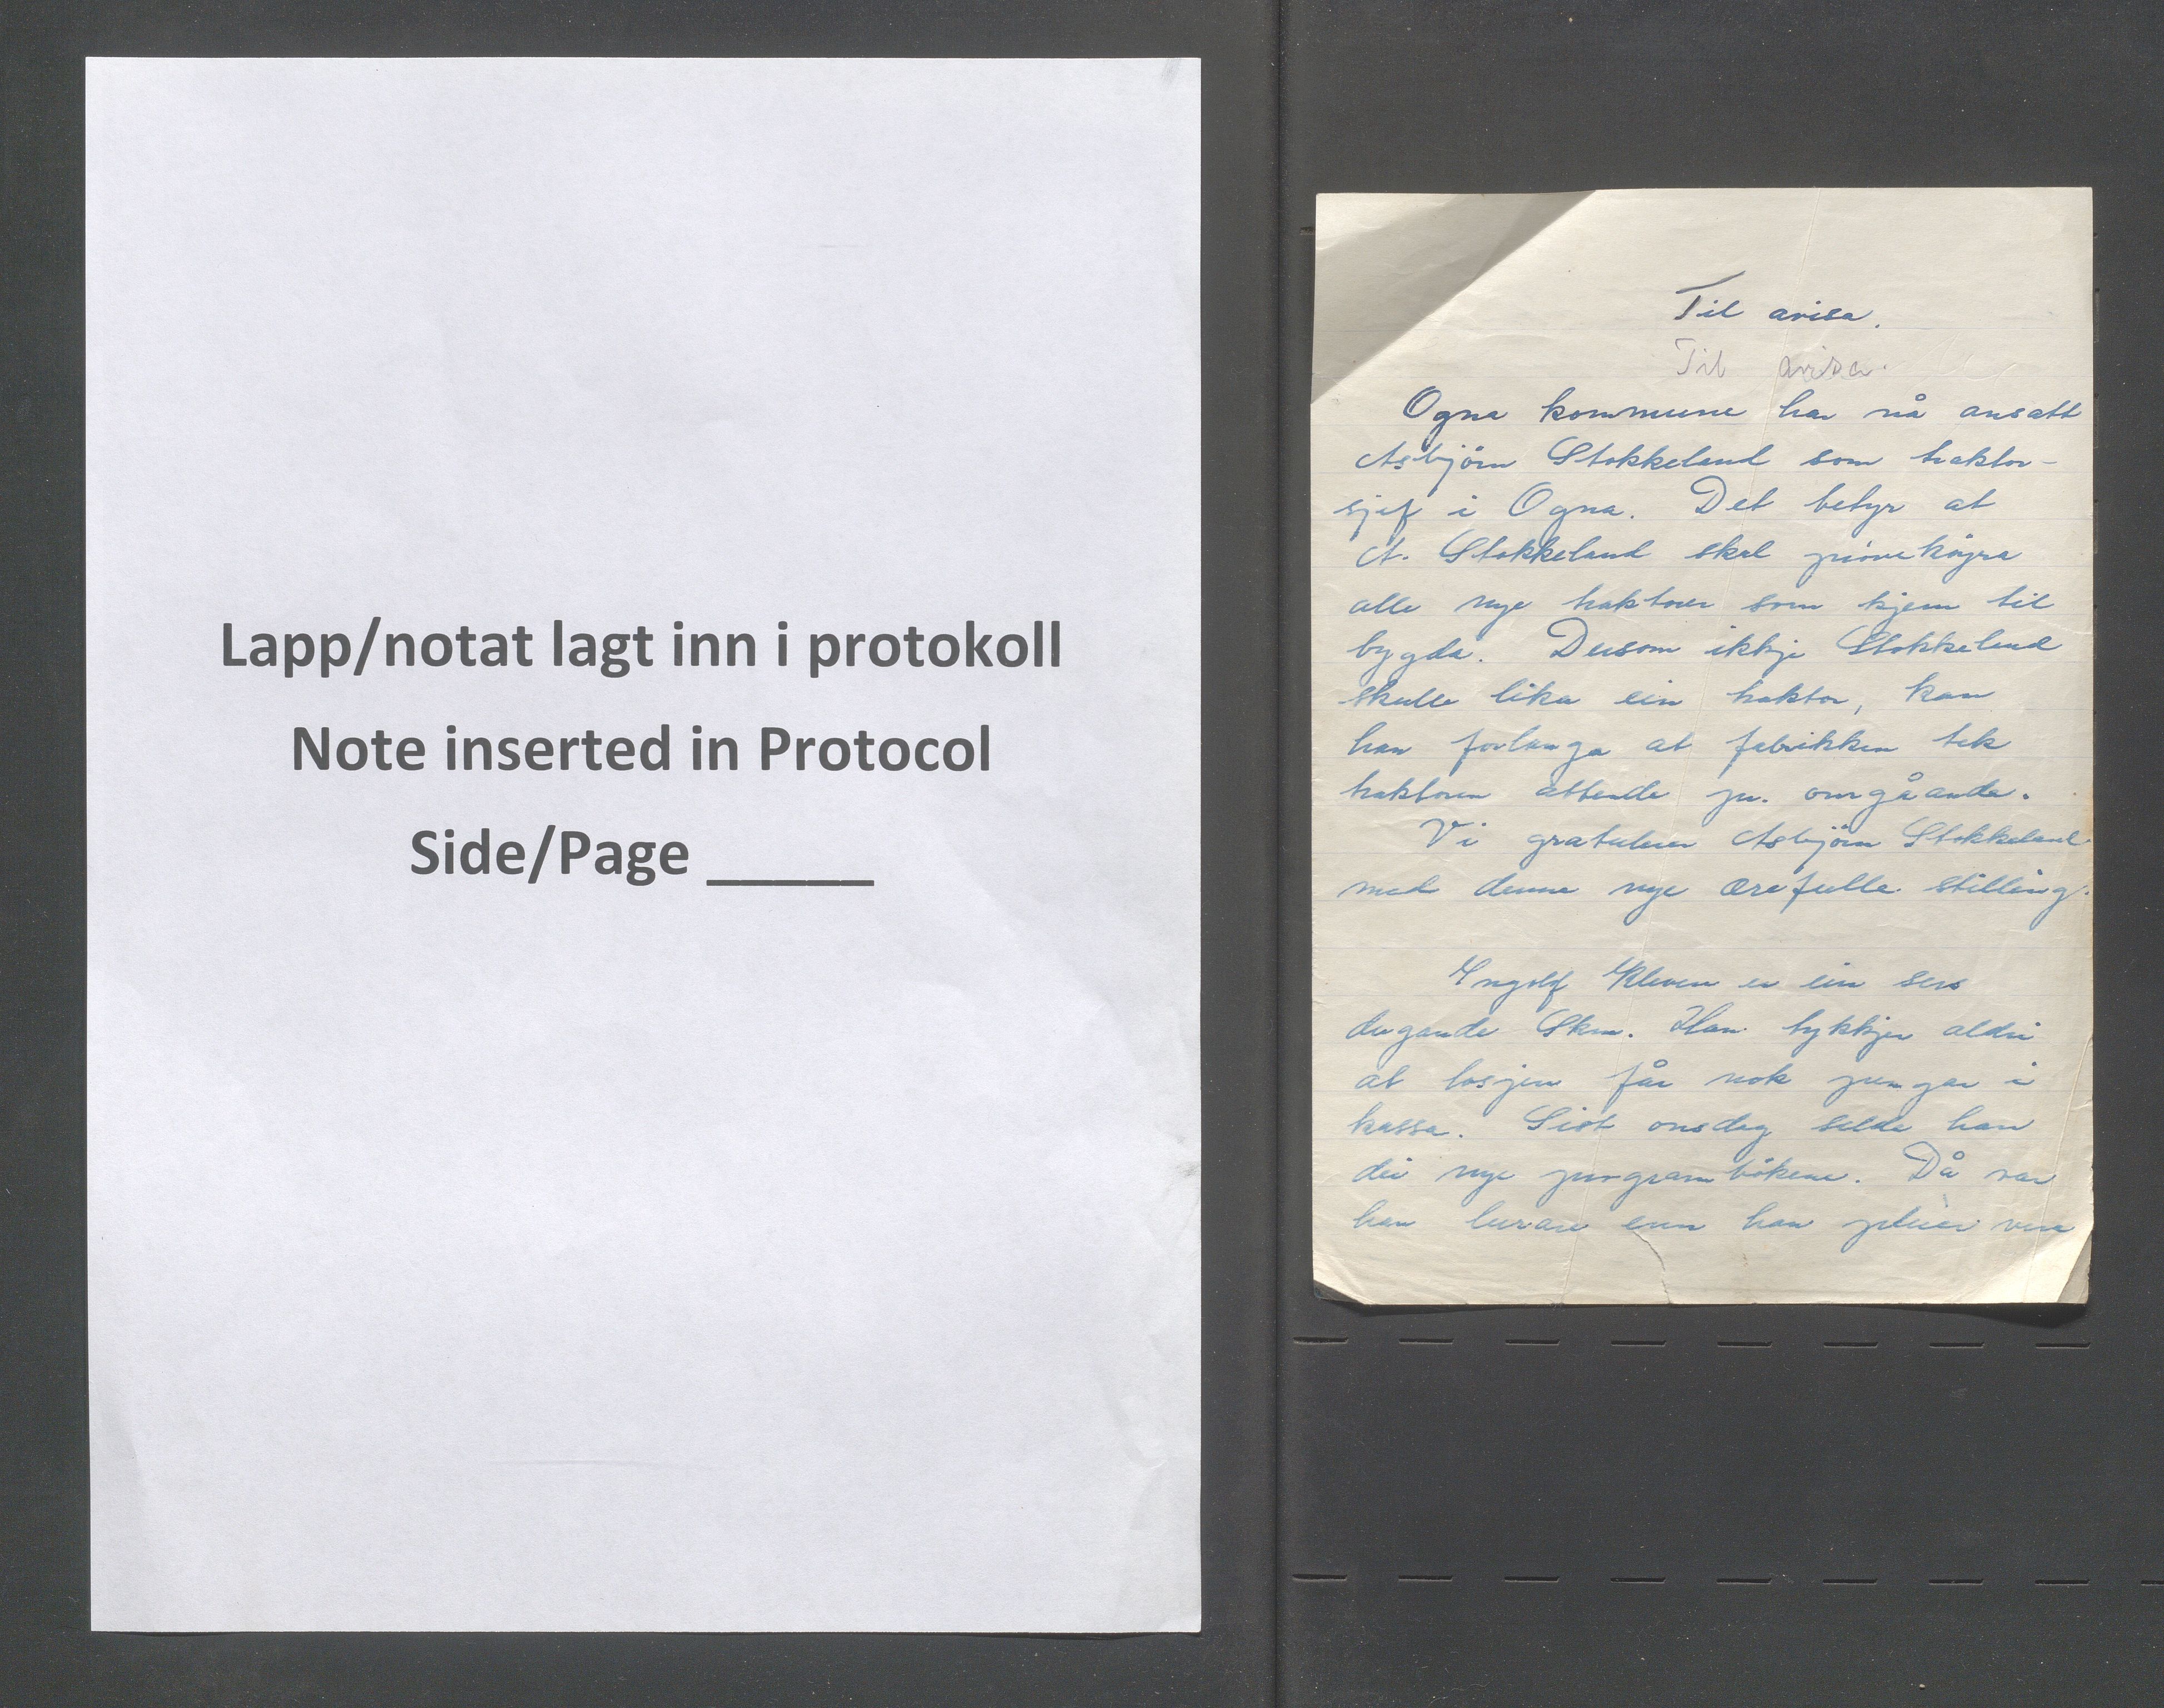 Lapp/notat lagt inn i protokoll
Note inserted in Protocol
Side/Page _____
Til avisa.
Til avisa.
Ogna kommune har nå ansatt
Asbjörn Stokkeland som traktor-
sjef i Ogna. Det betyr at
A. Stokkeland skal pröveköyra
alle nye traktorer som kjem til
bygda. Dersom ikkje Stokkeland
skulle lika ein traktor, kan
han forlanga at fabrikken tek
traktoren attende pr. omgåande.
Vi gratulerer Asbjörn Stokkeland
med denne nye ærefulle stilling.
Yngolf Kleven er ein sers
dugande Skm. Han tykkjer aldri
at losjen får nok pengar i
kassa. Sist onsdag selde han
dei nye programbökene. Då var
han lurare enn han pleier vera